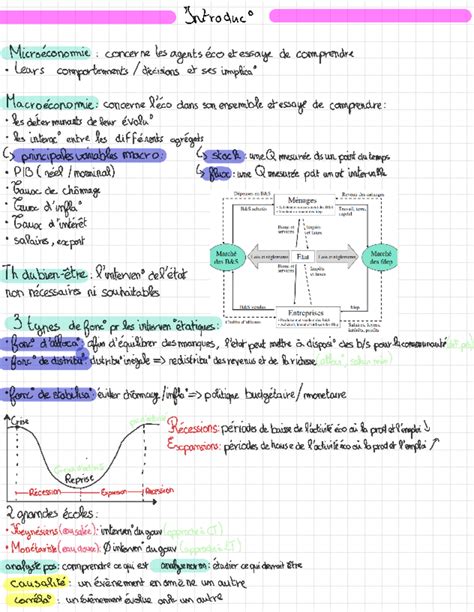 Introduc°
Microéconomie : concerne les agents éco et essaye de comprendre
• Leurs comportements / décisions et ses implica°
Macroéconomie : concerne l'éco dans son ensemble et essaye de comprendre :
• les déterminants de leur évolu°
• les interac° entre les différents agrégats
principales variables macro :
• PIB (réel / nominal)
Taux de chômage
Taux d'infla°
Taux d'intérêt
• salaires, export
stock : une Q mesurée ds un point du temps
flux : une Q mesurée pdt un intervalle
Dépenses en B&S
Revenu des ménages
Ménages
B&S achetés
Travail, terre, capital
Biens et services
Impôts
Marché des B&S
Lois et règlements
Etat
Lois et règlements
Marché des fdep
Biens et services
Impôts
B&S vendus
Entreprises
fdep
Th du bien-être : l'interven° de l'état
non nécessaires ni souhaitables
3 types de fonc° pr les interven° étatiques :
• fonc° d'alloca° : afin d'équilibrer des manques, l'état peut mettre à dispos° des b/s pour la communauté
• fonc° de distribu° : distribu° inégale => redistribu° des revenus et de la richesse
• fonc° de stabilisa° : éviter chômage / infla° => politique budgétaire / monétaire
Crise
Reprise
Récession
Expansion
Récession
Récessions : périodes de baisse de l'activité éco où la prod et l'emploi ↓
Expansions : périodes de hausse de l'activité éco où la prod et l'emploi ↗
2 grandes écoles :
• Keynésiens (eau salée) : interven° du gouv (approche à CT)
• Monétariste (eau douce) : Ø interven° du gouv (approche à LT)
analyste pos : comprendre ce qui est analyse norm : étudier ce qui devrait être
causalité : un évènement en amène un autre
corréla° : un évènement évolue avc un autre